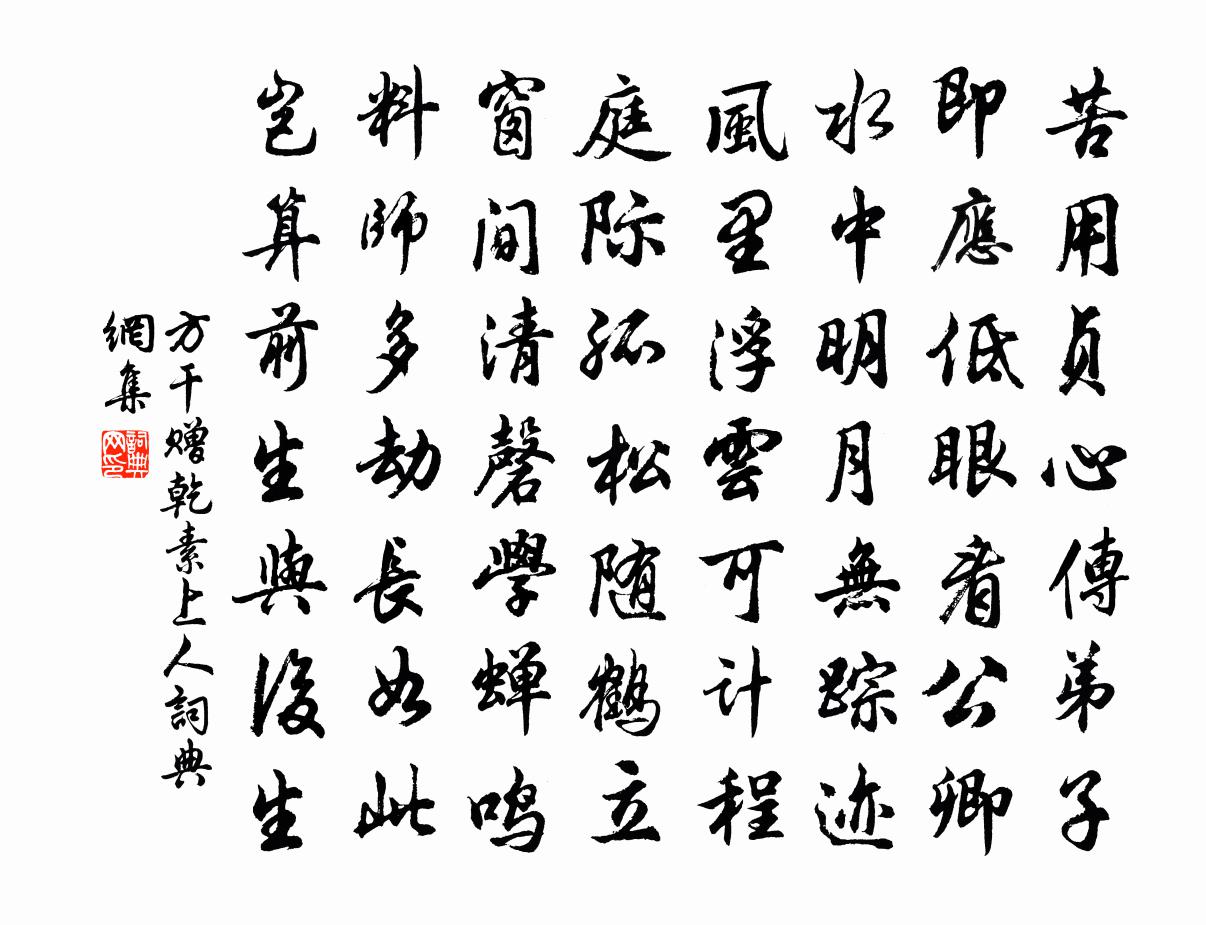 苦用貞心傳弟子
即應低眼看公卿
水中明月無踪迹
風里浮雲可计程
庭际孤松随鹤立
窗间清磬學蝉鸣
料師多劫長如此
岂算前生與後生
方干赠乾素上人詞典
網集
詞典網印